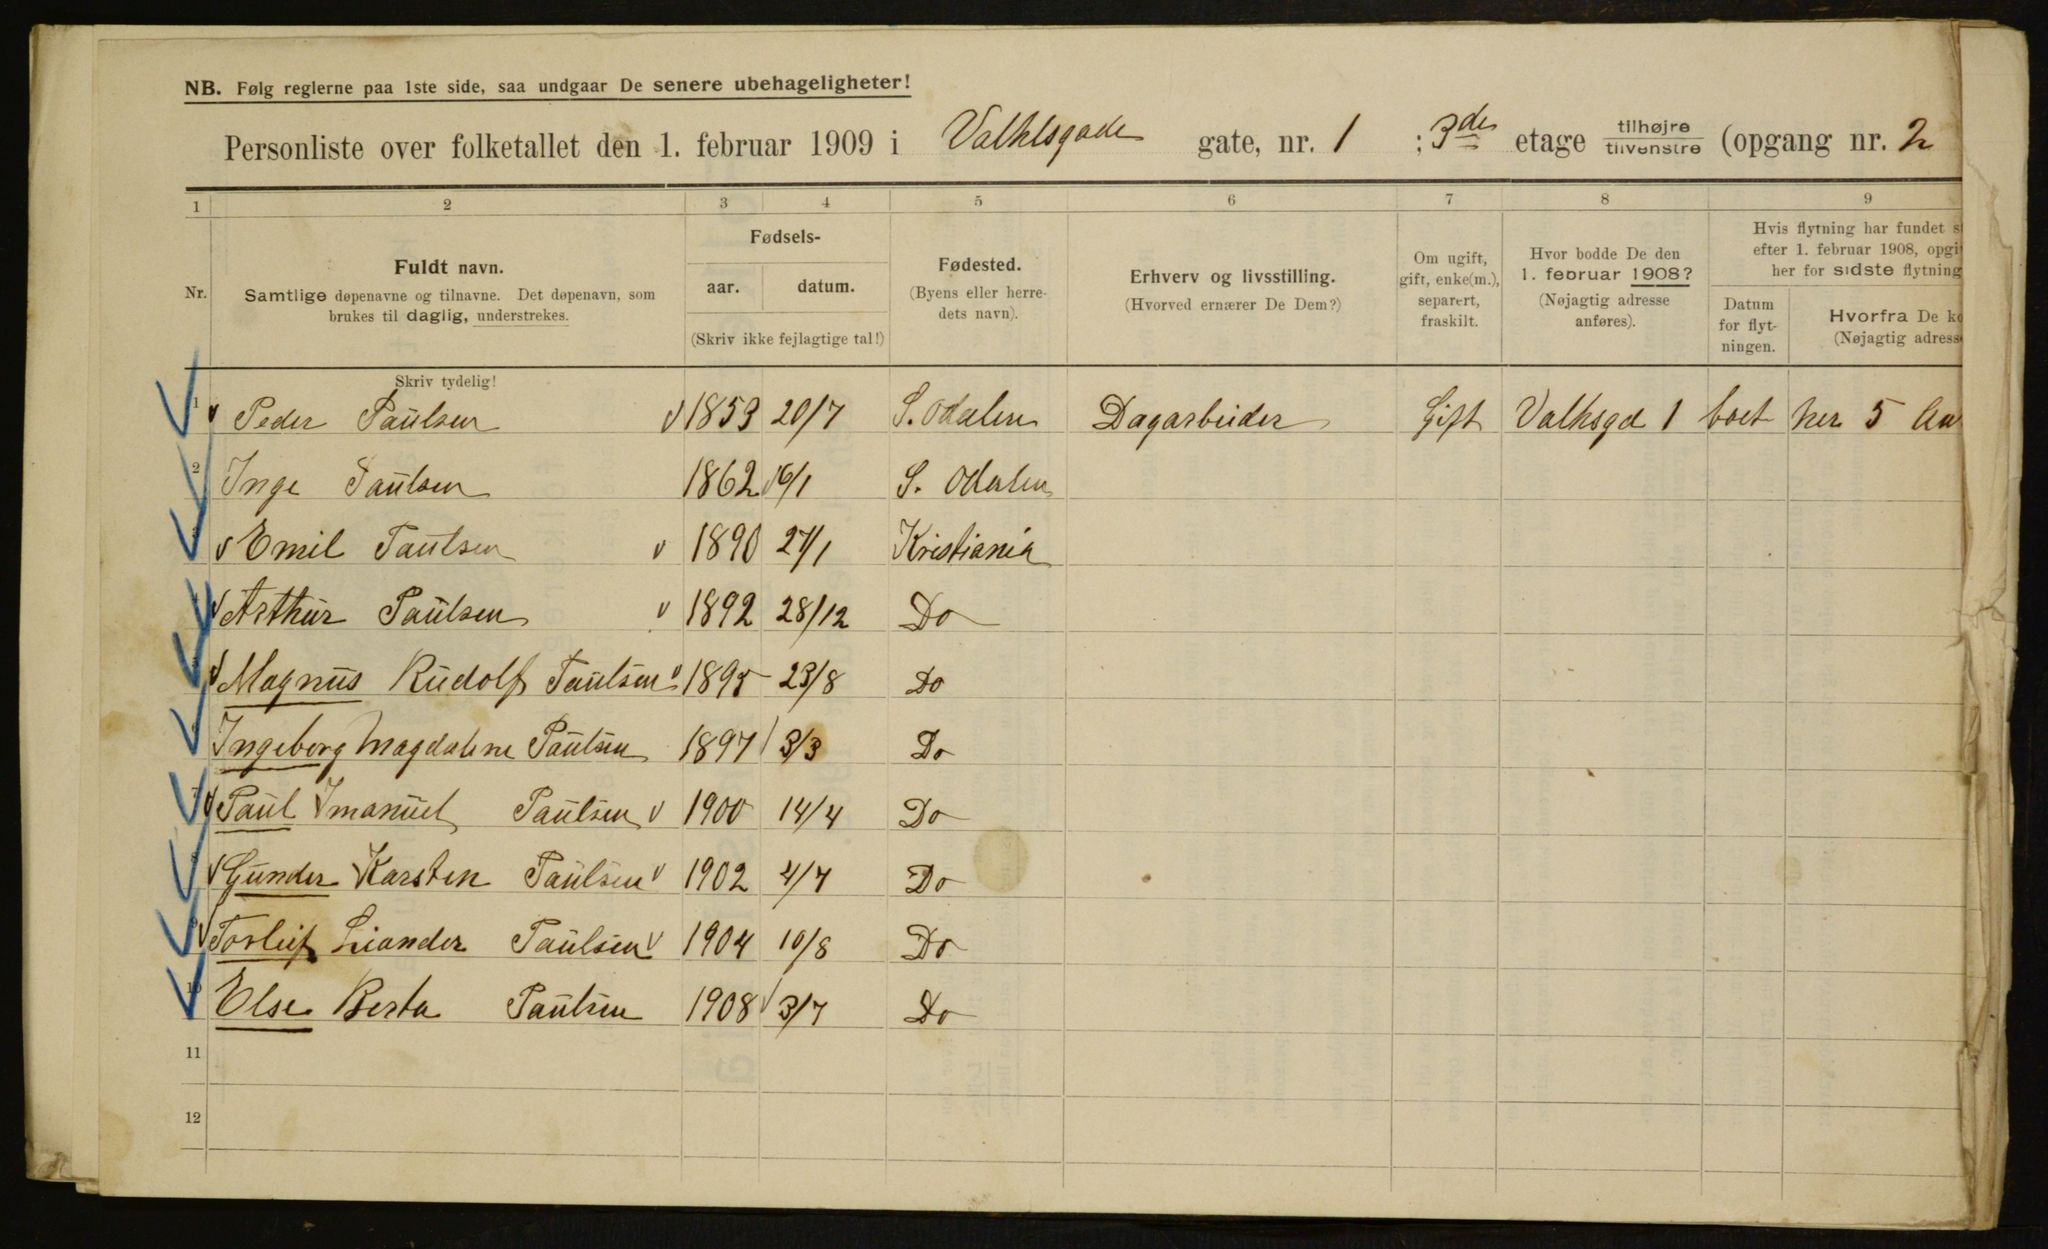 NB. Følg reglerne paa 1ste side, saa undgaar De senere ubehageligheter!
Personliste over folketallet den 1. februar 1909 i Valhlsgade gate, nr. 1 ; 3de etage tilhøjre tilvenstre (opgang nr. 2
1 2 3 4 5 6 7 8 9
Nr.
Fuldt navn.
Samtlige døpenavne og tilnavne. Det døpenavn, som
brukes til daglig, understrekes.
Skriv tydelig!
Fødsels-
aar. datum.
(Skriv ikke fejlagtige tal!)
Fødested.
(Byens eller herre-
dets navn).
Erhverv og livsstilling.
(Hvorved ernærer De Dem?)
Om ugift,
gift, enke(m.),
separert,
fraskilt.
Hvor bodde De den
1. februar 1908?
(Nøjagtig adresse
anføres).
Hvis flytning har fundet
efter 1. februar 1908,
her for sidste flytning
Datum
for flyt-
ningen.
Hvorfra De
(Nøjagtig
1 Peder Paulsen 1859 20/7 S. Odalen Dagarbeider Gift Valhsgd 1 boet her 5
2 Inge Paulsen 1862 16/1 S. Odalen
3 Emil Paulsen 1890 27/1 Kristiania
4 Arthur Paulsen 1892 28/12 Do
5 Magnus Rudolf Paulsen 1895 23/8 Do
6 Ingeborg Magdalene Paulsen 1897 3/3 Do
7 Paul Imanuel Paulsen 1900 14/4 Do
8 Gunder Karsten Paulsen 1902 4/7 Do
9 Torleif Liander Paulsen 1904 10/8 Do
10 Else Berta Paulsen 1908 3/7 Do
11
12